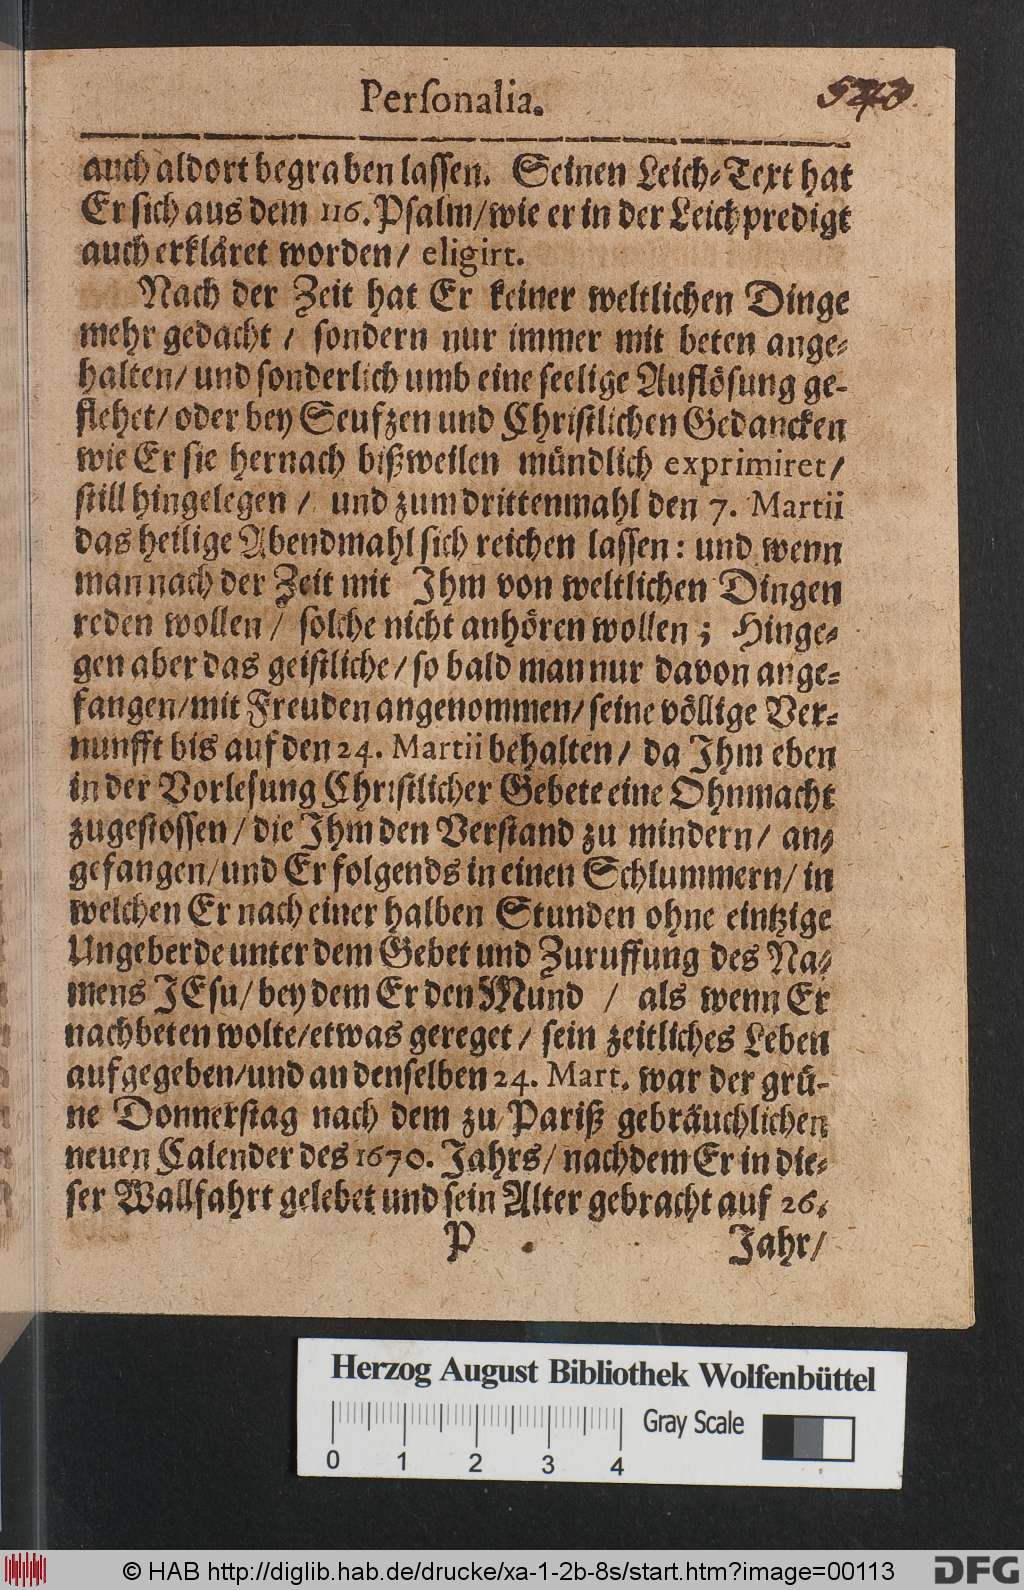 Personalia.
auch aldort begraben lassen. Seinen Leich-Text hat
Er sich aus dem 116. Psalm/ wie er in der Leichpredigt
auch erkläret worden/ eligirt.
Nach der Zeit hat Er keiner weltlichen Dinge
mehr gedacht / sondern nur immer mit beten ange-
halten/ und sonderlich umb eine seelige Auflösung ge-
flehet/ oder bey Seufzen und Christlichen Gedancken
wie Er sie hernach bißweilen mündlich exprimiret/
still hingelegen / und zum drittenmahl den 7. Martii
das heilige Abendmahl sich reichen lassen: und wenn
man nach der Zeit mit Ihm von weltlichen Dingen
reden wollen / solche nicht anhören wollen; Hinge-
gen aber das geistliche/ so bald man nur davon ange-
fangen/ mit Freuden angenommen/ seine völlige Ver-
nunfft bis auf den 24. Martii behalten/ da Ihm eben
in der Vorlesung Christlicher Gebete eine Ohnmacht
zugestossen/ die Ihm den Verstand zu mindern/ an-
gefangen/ und Er folgends in einen Schlummern/ in
welchen Er nach einer halben Stunden ohne eintzige
Ungeberde unter dem Gebet und Zuruffung des Na-
mens JEsu/ bey dem Er den Mund / als wenn Er
nachbeten wolte/ etwas gereget/ sein zeitliches Leben
aufgegeben/ und an denselben 24. Mart. war der grü-
ne Donnerstag nach dem zu Pariß gebräuchlichen
neuen Calender des 1670. Jahrs/ nachdem Er in die-
ser Wallfahrt gelebet und sein Alter gebracht auf 26.
P Jahr/
Herzog August Bibliothek Wolfenbüttel
Gray Scale
0 1 2 3 4
© HAB http://diglib.hab.de/drucke/xa-1-2b-8s/start.htm?image=00113
DFG